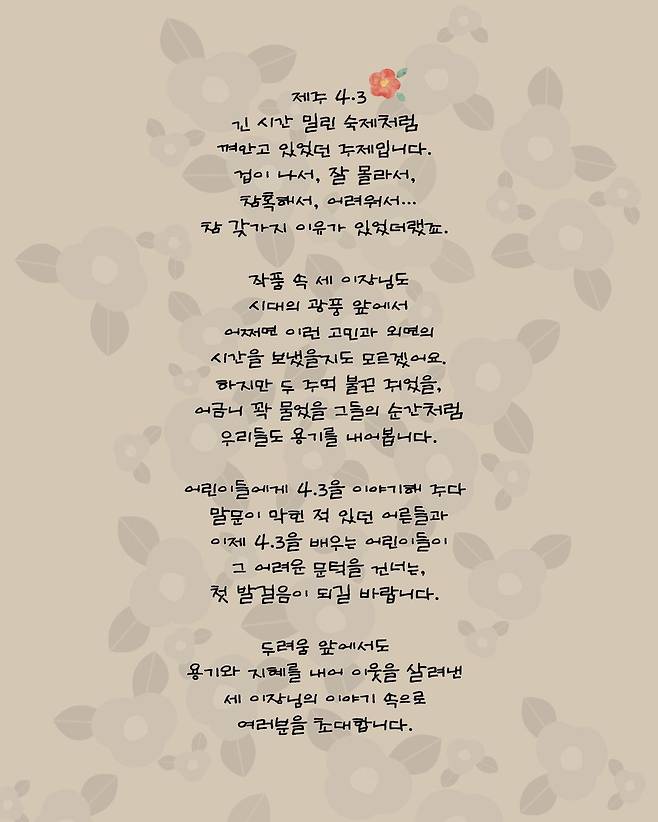 제주 4.3
긴 시간 밀린 숙제처럼
껴안고 있었던 주제입니다.
겁이 나서, 잘 몰라서,
참혹해서, 어려워서…
참 갖가지 이유가 있었더랬죠.
작품 속 세 이장님도
시대의 광풍 앞에서
어쩌면 이런 고민과 외면의
시간을 보냈을지도 모르겠어요.
하지만 두 주먹 불끈 쥐었을,
어금니 꽉 물었을 그들의 순간처럼
우리들도 용기를 내어봅니다.
어린이들에게 4.3을 이야기해 주다
말문이 막힌 적 있던 어른들과
이제 4.3을 배우는 어린이들이
그 어려운 문턱을 건너는,
첫 발걸음이 되길 바랍니다.
두려움 앞에서도
용기와 지혜를 내어 이웃을 살려낸
세 이장님의 이야기 속으로
여러분을 초대합니다.